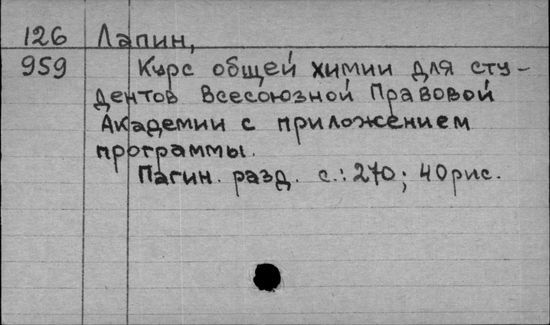 126 Лапин,
959 Курс общей химии для сту-
дентов Всесоюзной Правовой
Академии с приложением
программы.
Пагин. разд. с.: 270; 40 рис.